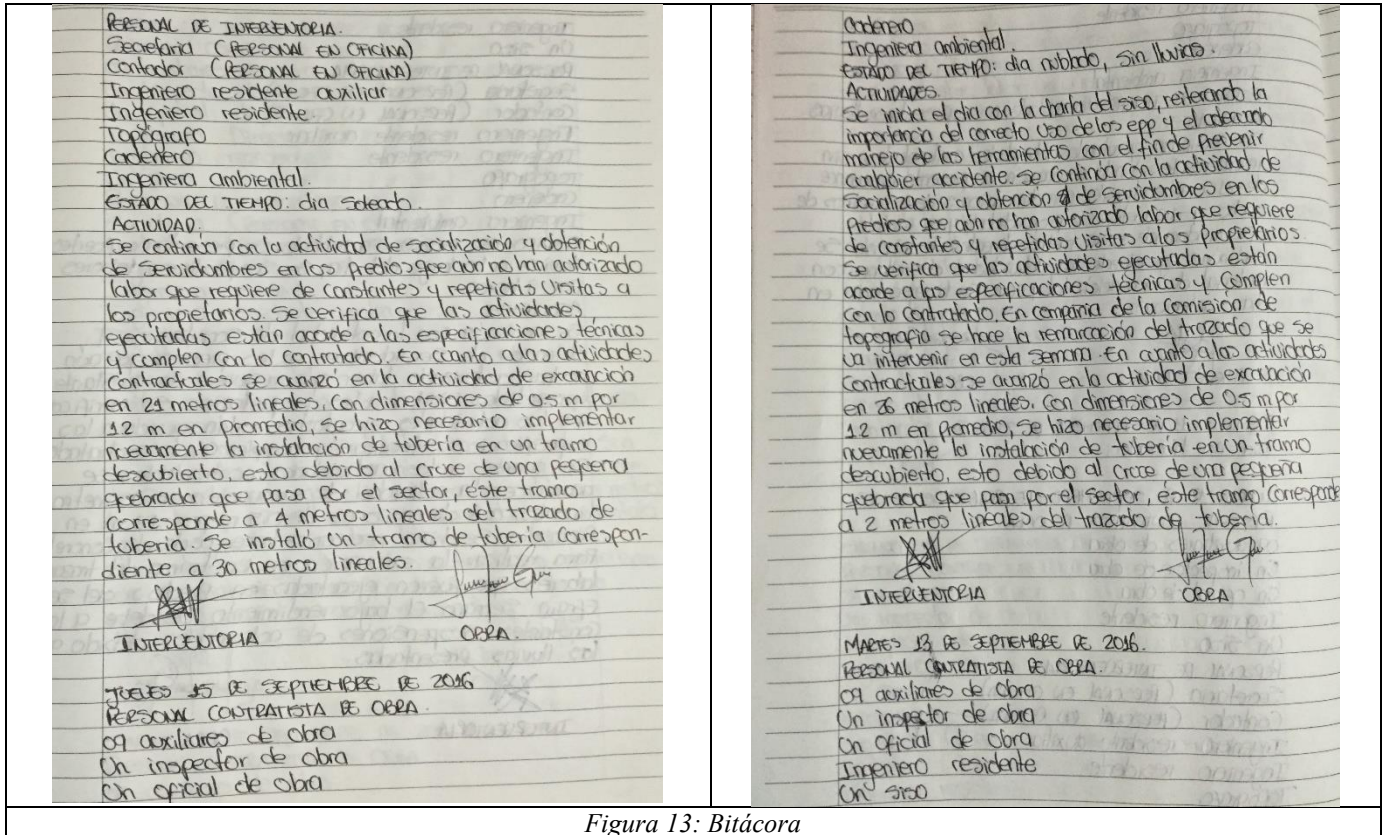 PERSONAL DE INTERVENTORIA.
Secretaria (PERSONAL EN OFICINA)
Contador (PERSONAL EN OFICINA)
Ingeniero residente auxiliar
Ingeniero residente
Topógrafo
Cadenero
Ingeniera ambiental.
ESTADO DEL TIEMPO: dia soleado.
ACTIVIDAD:
Se continúa con la actividad de socialización y obtención
de servidumbres en los predios que aún no han autorizado
labor que requiere de constantes y repetidas visitas a
los propietarios. Se verifica que las actividades
ejecutadas están acorde a las especificaciones técnicas
y cumplen con lo contratado. En cuanto a las actividades
contractuales se avanzó en la actividad de excavación
en 21 metros lineales, con dimensiones de 0.5 m por
1.2 m en promedio, se hizo necesario implementar
nuevamente la instalación de tubería en un tramo
descubierto, esto debido al cruce de una pequeña
quebrada que pasa por el sector, éste tramo
corresponde a 4 metros lineales del trazado de
tubería. Se instaló un tramo de tubería correspon-
diente a 30 metros lineales.
INTERVENTORIA OBRA.
JUEVES 15 DE SEPTIEMBRE DE 2016
PERSONAL CONTRATISTA DE OBRA.
09 auxiliares de obra
Un inspector de obra
Un oficial de obra
Cadenero
Ingeniera ambiental.
ESTADO DEL TIEMPO: dia nublado, sin lluvias.
ACTIVIDADES.
Se inicia el dia con la charla del siso, reiterando la
importancia del correcto uso de los epp y el adecuado
manejo de las herramientas con el fin de prevenir
cualquier accidente. Se continúa con la actividad de
socialización y obtención de servidumbres en los
predios que aún no han autorizado labor que requiere
de constantes y repetidas visitas a los propietarios.
Se verifica que las actividades ejecutadas están
acorde a las especificaciones técnicas y cumplen
con lo contratado. En compañia de la comisión de
topografía se hace la remarcación del trazado que se
va intervenir en esta semana. En cuanto a las actividades
contractuales se avanzó en la actividad de excavación
en 26 metros lineales, con dimensiones de 0.5 m por
1.2 m en promedio, se hizo necesario implementar
nuevamente la instalación de tubería en un tramo
descubierto, esto debido al cruce de una pequeña
quebrada que pasa por el sector, éste tramo corresponde
a 2 metros lineales del trazado de tubería.
INTERVENTORIA OBRA
MARTES 13 DE SEPTIEMBRE DE 2016.
PERSONAL CONTRATISTA DE OBRA.
09 auxiliares de obra
Un inspector de obra
Un oficial de obra
Ingeniero residente
Un siso
Figura 13: Bitácora